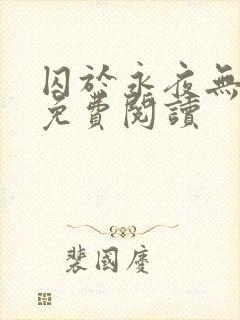 囚於永夜無
免費閱讀
裴國慶